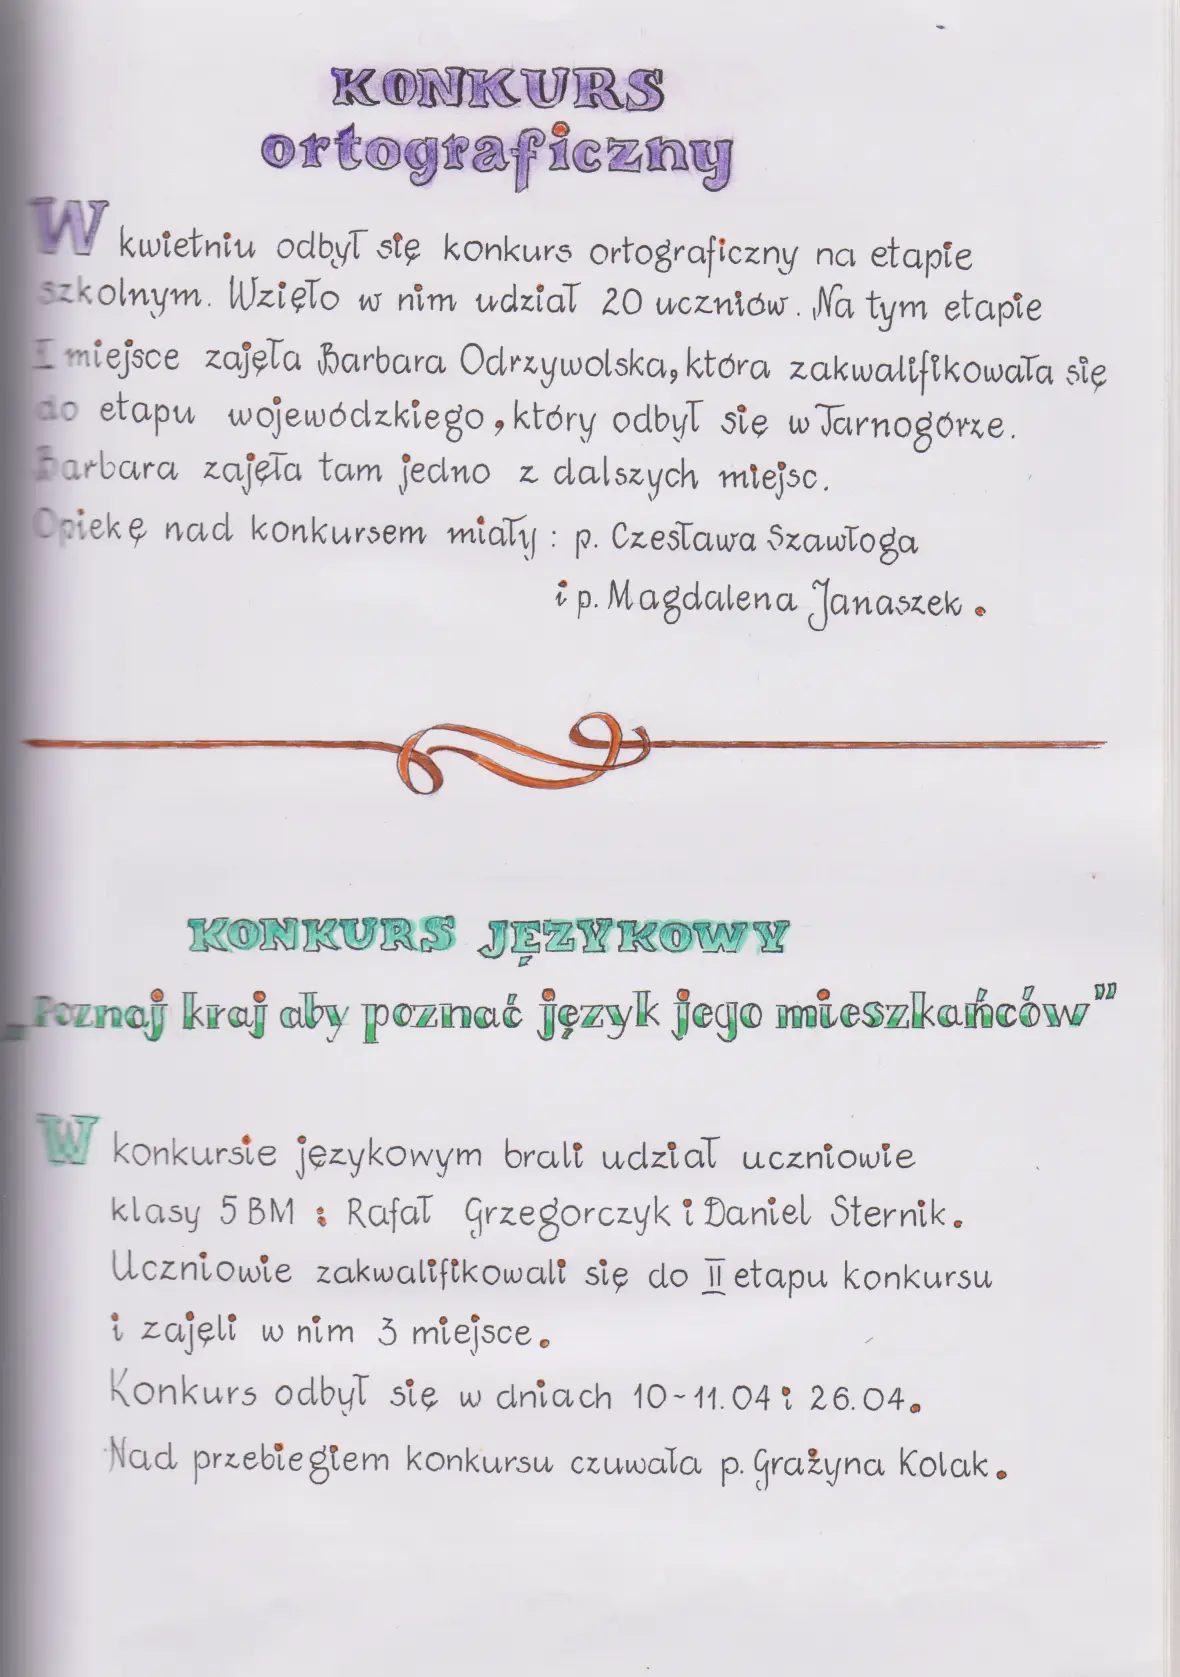 KONKURS
ortograficzny
W kwietniu odbył się konkurs ortograficzny na etapie
szkolnym. Wzięło w nim udział 20 uczniów. Na tym etapie
I miejsce zajęła Barbara Odrzywolska, która zakwalifikowała się
do etapu wojewódzkiego, który odbył się w Tarnogórze.
Barbara zajęła tam jedno z dalszych miejsc.
Opiekę nad konkursem miały: p. Czesława Szawłoga
i p. Magdalena Janaszek.
KONKURS JĘZYKOWY
„Poznaj kraj aby poznać język jego mieszkańców”
W konkursie językowym brali udział uczniowie
klasy 5BM: Rafał Grzegorczyk i Daniel Sternik.
Uczniowie zakwalifikowali się do II etapu konkursu
i zajęli w nim 3 miejsce.
Konkurs odbył się w dniach 10-11.04 i 26.04.
Nad przebiegiem konkursu czuwała p. Grażyna Kolak.